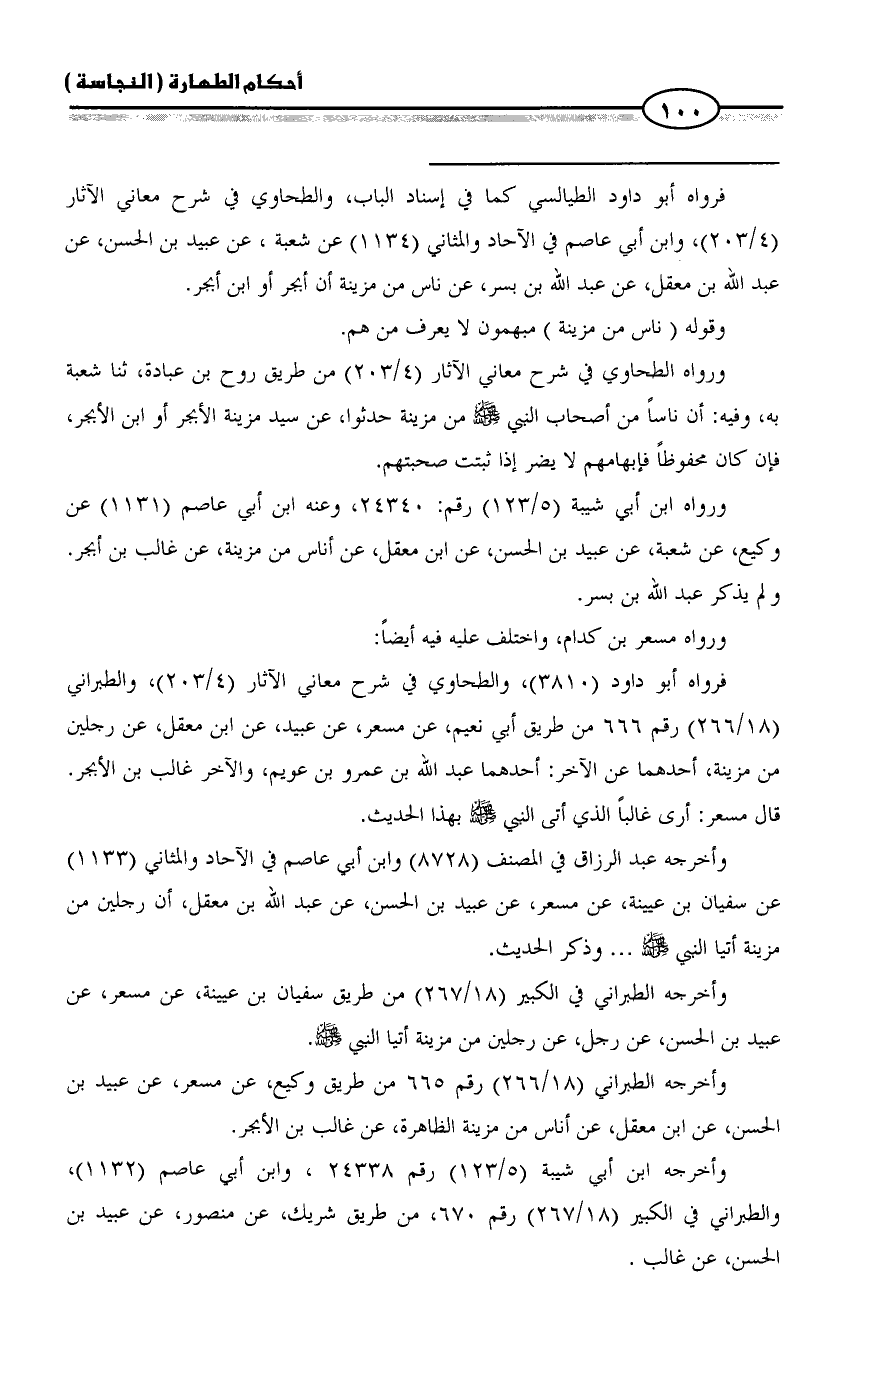 أحكام الطهارة (النجاسة)
١٠٠
فرواه أبو داود الطيالسي كما في إسناد الباب، والطحاوي في شرح معاني الآثار
(٢٠٣/٤)، وابن أبي عاصم في الآحاد والمثاني (١١٣٤) عن شعبة ، عن عبيد بن الحسن، عن
عبد الله بن معقل، عن عبد الله بن بسر، عن ناس من مزينة أن أبجر أو ابن أبجر.
وقوله ( ناس من مزينة ) مبهمون لا يعرف من هم.
ورواه الطحاوي في شرح معاني الآثار (٢٠٣/٤) من طريق روح بن عبادة، ثنا شعبة
به، وفيه: أن ناساً من أصحاب النبي ﷺ من مزينة حدثوا، عن سيد مزينة الأبجر أو ابن الأبجر،
فإن كان محفوظاً فإبهامهم لا يضر إذا ثبتت صحبتهم.
ورواه ابن أبي شيبة (١٢٣/٥) رقم: ٢٤٣٤٠، وعنه ابن أبي عاصم (١١٣١) عن
وكيع، عن شعبة، عن عبيد بن الحسن، عن ابن معقل، عن أناس من مزينة، عن غالب بن أبجر.
و لم يذكر عبد الله بن بسر.
ورواه مسعر بن كدام، واختلف عليه فيه أيضاً:
فرواه أبو داود (٣٨١٠)، والطحاوي في شرح معاني الآثار (٢٠٣/٤)، والطبراني
(٢٦٦/١٨) رقم ٦٦٦ من طريق أبي نعيم، عن مسعر، عن عبيد، عن ابن معقل، عن رجلين
من مزينة، أحدهما عن الآخر: أحدهما عبد الله بن عمرو بن عويم، والآخر غالب بن الأبجر.
قال مسعر: أرى غالباً الذي أتى النبي ﷺ بهذا الحديث.
وأخرجه عبد الرزاق في المصنف (٨٧٢٨) وابن أبي عاصم في الآحاد والمثاني (١١٣٣)
عن سفيان بن عيينة، عن مسعر، عن عبيد بن الحسن، عن عبد الله بن معقل، أن رجلين من
مزينة أتيا النبي ﷺ ... وذكر الحديث.
وأخرجه الطبراني في الكبير (٢٦٧/١٨) من طريق سفيان بن عيينة، عن مسعر، عن
عبيد بن الحسن، عن رجل، عن رجلين من مزينة أتيا النبي ﷺ.
وأخرجه الطبراني (٢٦٦/١٨) رقم ٦٦٥ من طريق وكيع، عن مسعر، عن عبيد بن
الحسن، عن ابن معقل، عن أناس من مزينة الظاهرة، عن غالب بن الأبجر.
وأخرجه ابن أبي شيبة (١٢٣/٥) رقم ٢٤٣٣٨ ، وابن أبي عاصم (١١٣٢)،
والطبراني في الكبير (٢٦٧/١٨) رقم ٦٧٠، من طريق شريك، عن منصور، عن عبيد بن
الحسن، عن غالب .